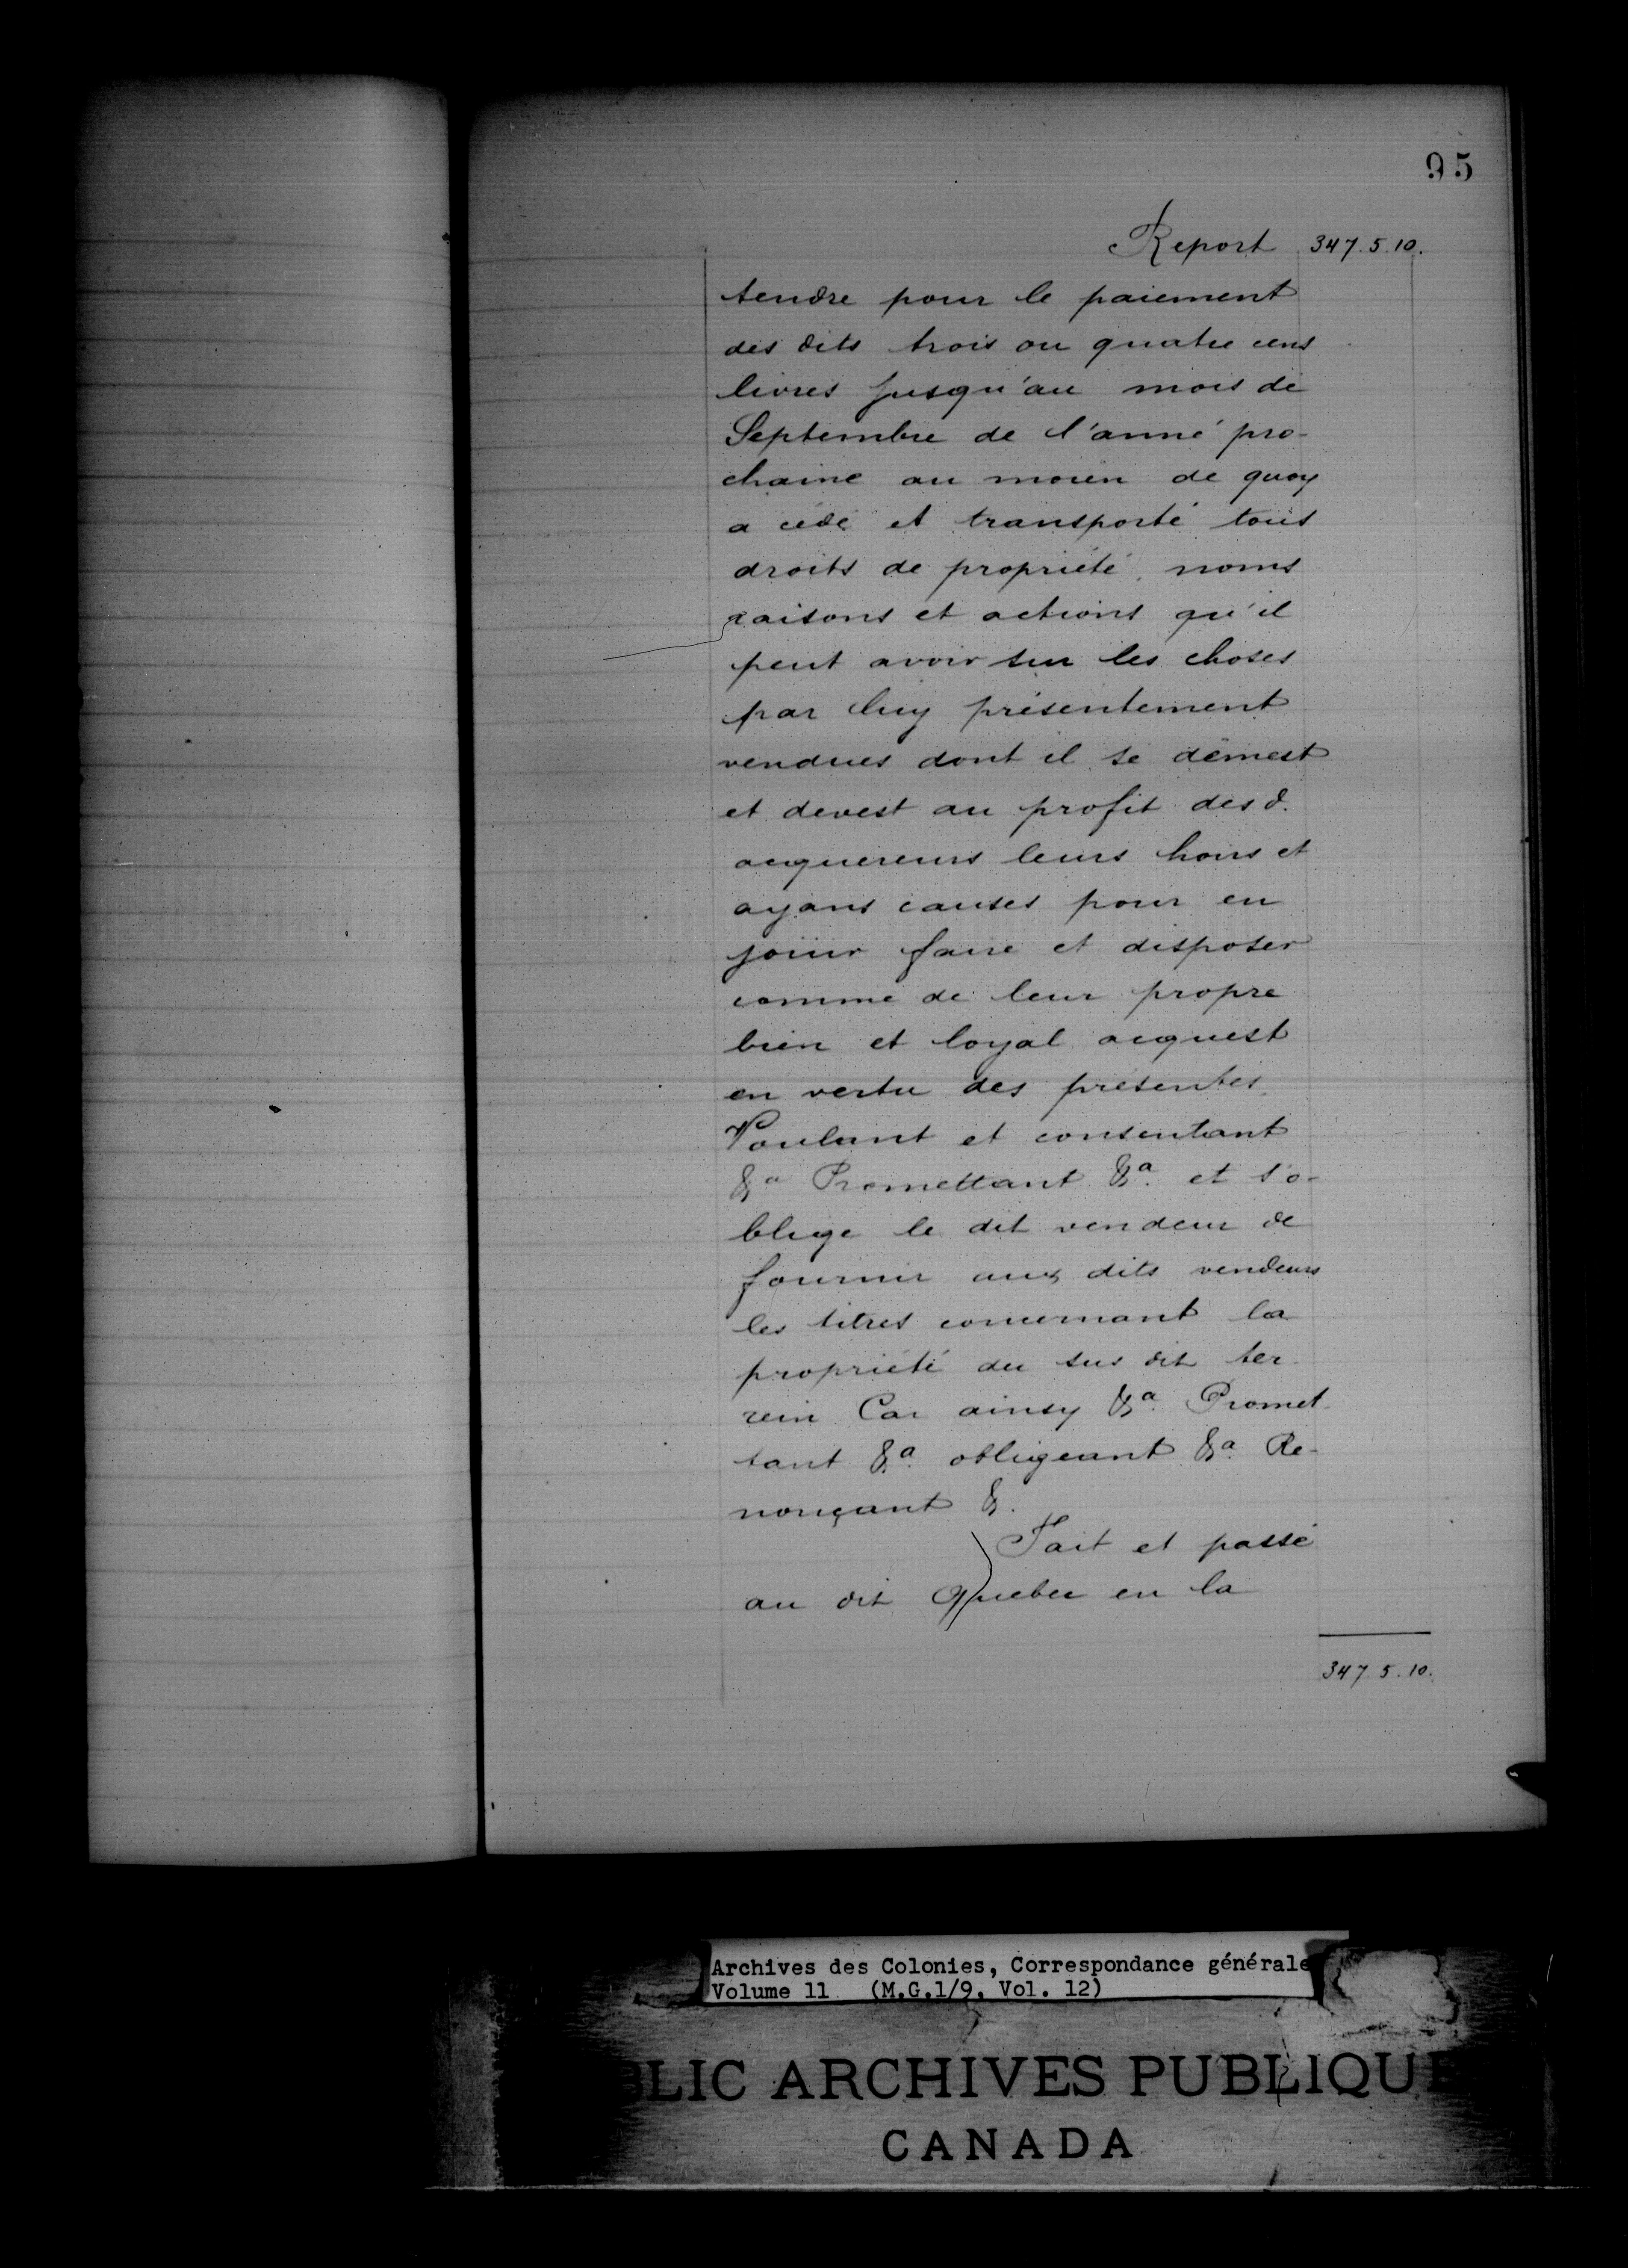 95
Report 347.5.10.
tendre pour le paiement
des dits trois ou quatre cens
livres jusqu'au mois de
Septembre de l'anné pro-
chaine au moien de quoy
a cédé et transporté tous
droits de propriété, noms
raisons et actions qu'il
peut avoir sur les choses
par luy présentement
vendues dont il se démest
et devest au profit des d.
acquereurs leurs hoirs et
ayans causes pour en
joüir faire et disposer
comme de leur propre
bien et loyal acquest
en vertu des présentes
Voulant et consentant
&a Promettant &a. et s'o-
blige le dit vendeur de
fournir aux dits vendeurs
les titres concernant la
propriété du sus dit ter-
rein Car ainsy &a. Promet-
tant &a. obligeant &a. Re-
nonçant &.
Fait et passé
au dit Quebec en la
347.5.10.
Archives des Colonies, Correspondance générale
Volume 11 (M.G.1/9, Vol. 12)
BLIC ARCHIVES PUBLIQUE
CANADA